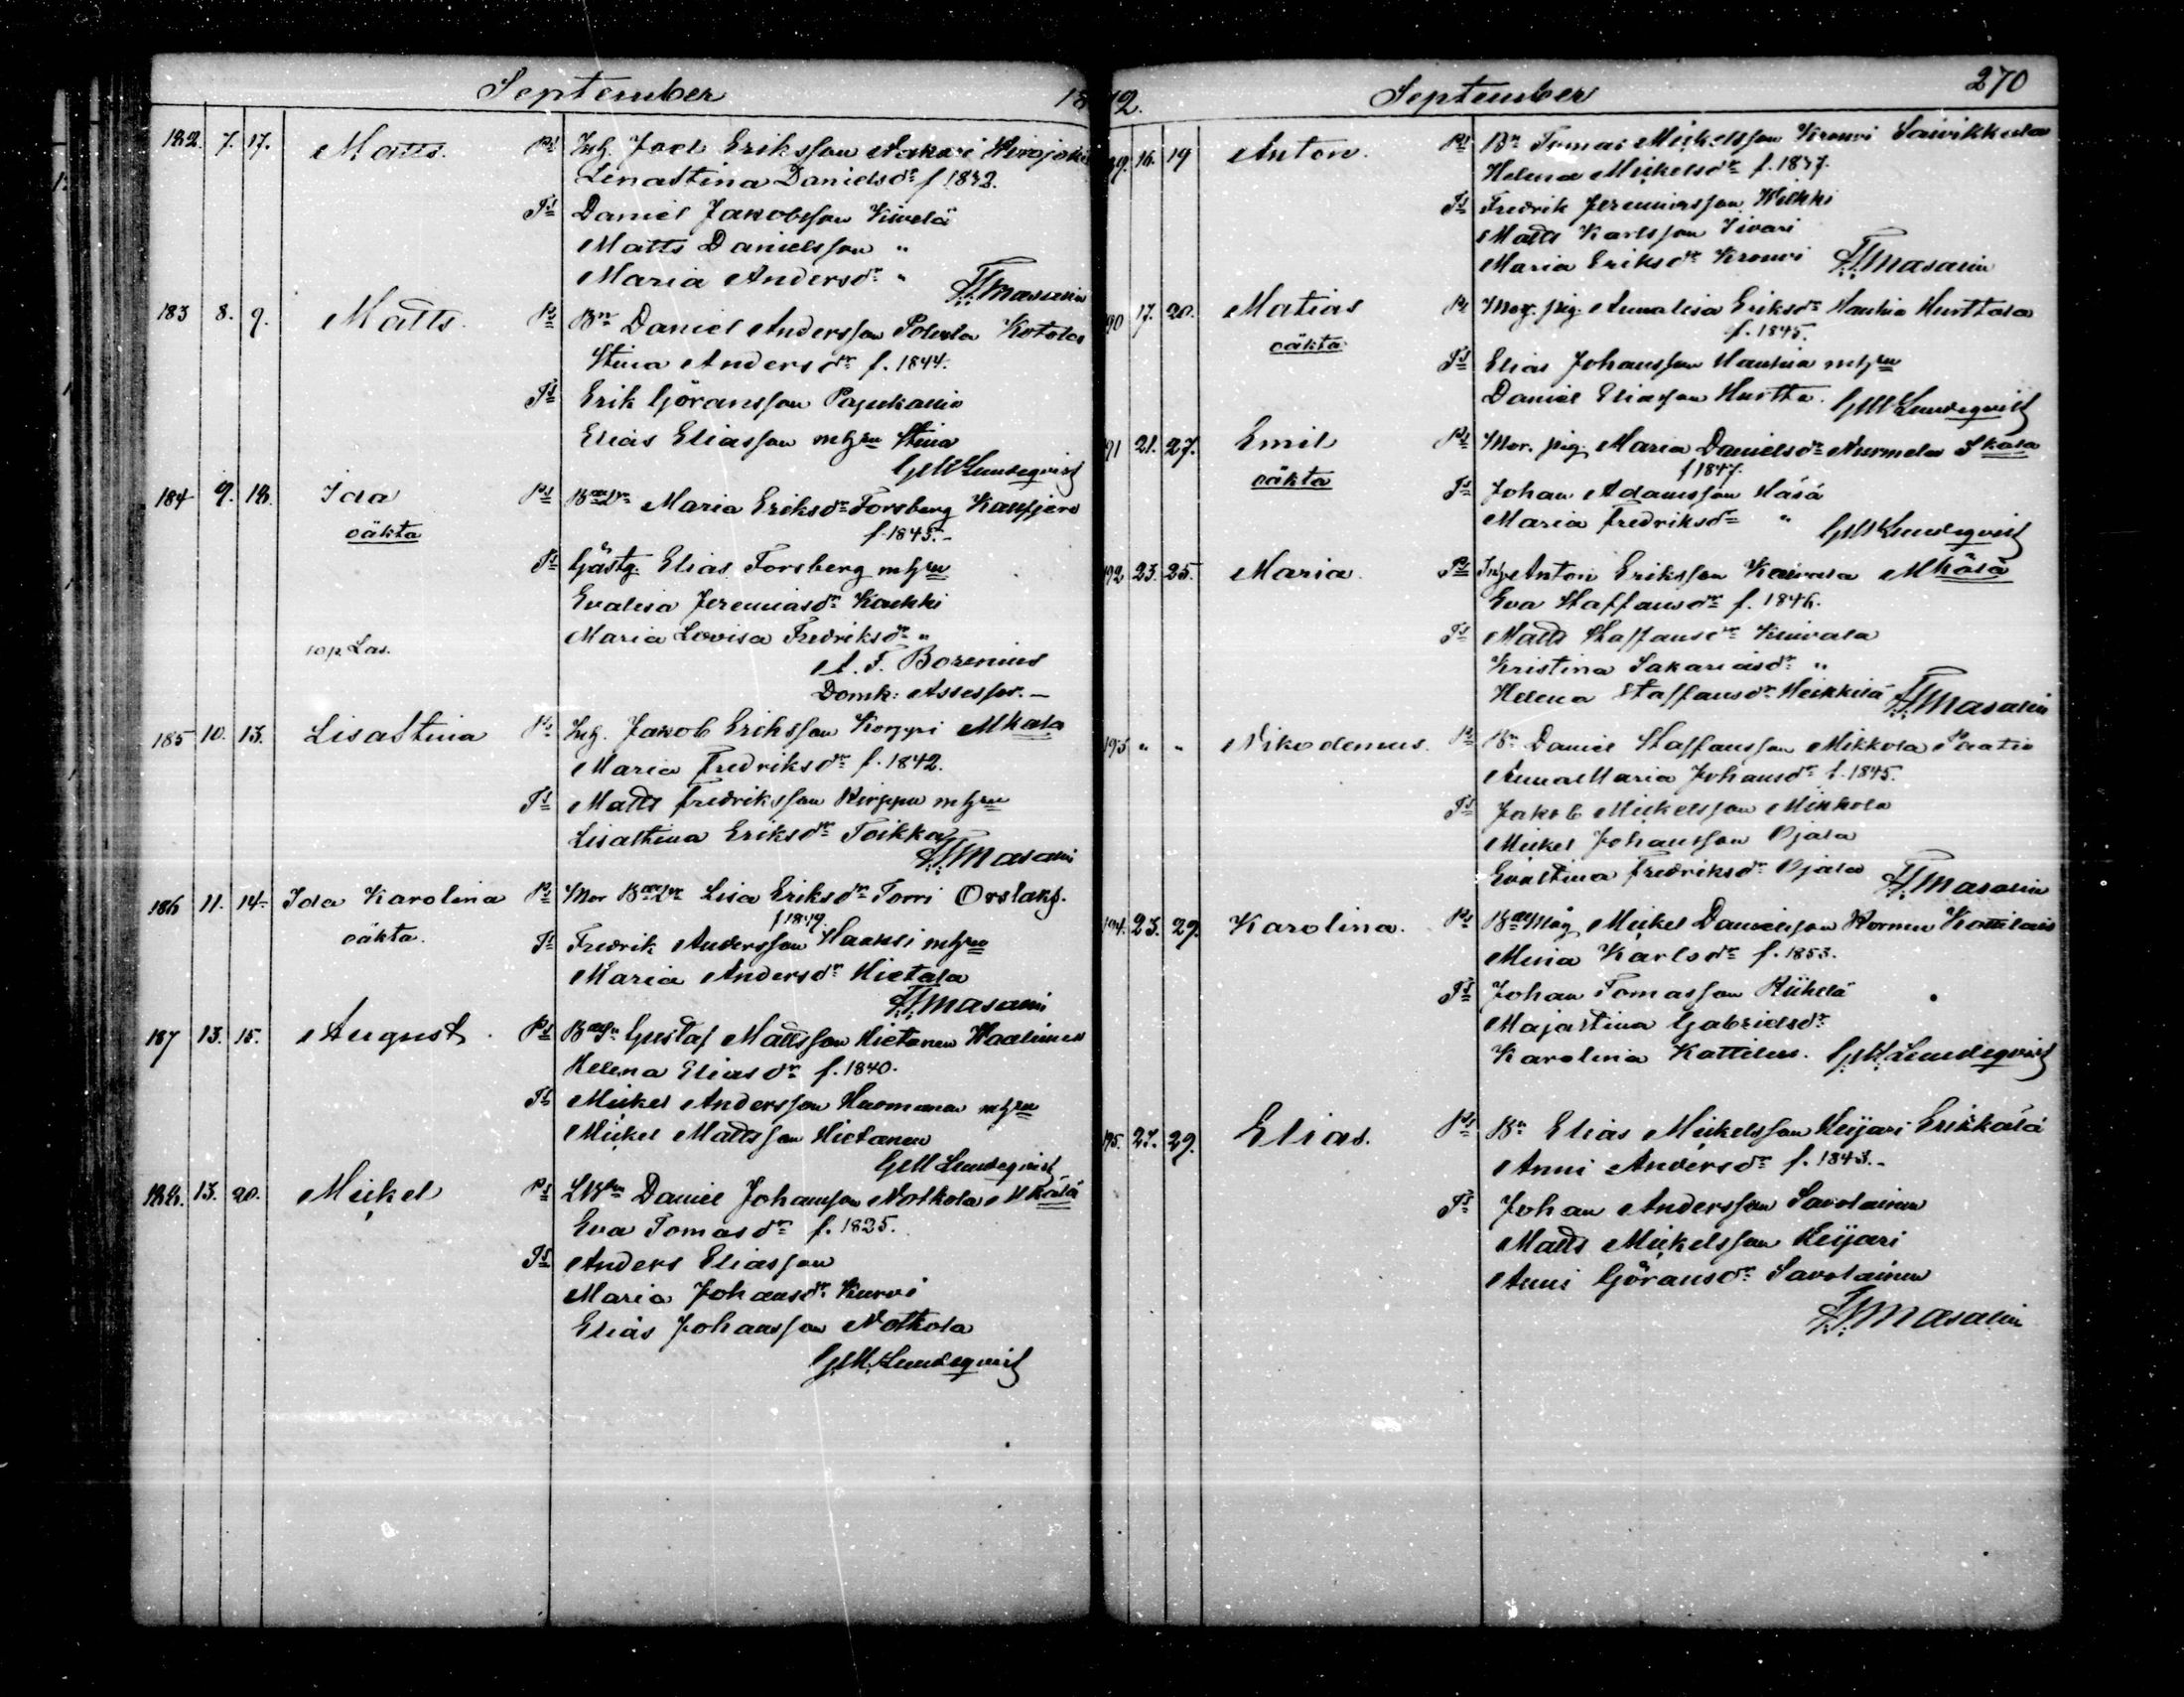 September 18
182. 7. 17. Matts. Ps Inh. Joel Eriksson Nakari Wirojoki
Linastina Danielsdr f. 1832.
Ts Daniel Jakobsson Kiwelä
Matts Danielsson "
Maria Andersdr "
Masalin
183 8. 9. Matts. Ps Bn Daniel Andersson Kotola
Stina Andersdr f. 1844.
Ts Erik Göransson
Elias Eliasson mhru Stina
GM Lundeqvist
184 9. 18. Ida Ps Maria Eriksdr Forsberg
oäkta f. 1845.-
Ts Gästg. Elias Forsberg mhru
Evalisa Jeremiasdr Kaukki
Maria Lovisa Fredriksdr "
A. F. Borenius
Domk: Assessor. -
185 10. 13. Lisa Stina Ps Inh. Jakob Eriksson Korppi Mkala
Maria Fredriksdr f. 1842.
Ts Matts Fredriksson mhru
Lisastina Eriksdr Toikka
Masalin
186 11. 14. Ida Karolina Ps Mor Lisa Eriksdr Torri Orslaks.
oäkta. f 1849.
Ts Fredrik Andersson Haansi mhru
Maria Andersdr Hietala
Masalin
187 13. 15. August. Ps Gustaf Mattsson Hietanen
Helena Eliasdr f. 1840.
Ts Mickel Andersson mhru
Mickel Mattsson Hietanen
GM Lundeqvist
188. 13. 20. Mickel Ps Daniel Johansson Notkola Mkälä
Eva Tomasdr f. 1825.
Ts Anders Eliasson
Maria Johansdr Kurvi
Elias Johansson Notkola
GM. Lundeqvist
72. September 270
89. 16. 19 Anton. Ps Bn Tomas Mickelsson Kronvi Saivikkala
Helena Mickelsdr f. 1837.
Ts Fredrik Jeremiasson
Matts Karlsson Iivari
Maria Eriksdr Kronvi Masalin
90 17. 20. Matias Ps Mor. pig. Annalisa Eriksdr Hauhia Hurttala
oäkta f. 1845.
Ts Elias Johansson Hauhia mhru
Daniel Eliasson Hurtta. GM Lundeqvist
91 21. 27. Emil Ps Mor. pig. Maria Danielsdr Nurmela Skala
oäkta f 1847.
Ts Johan Adamsson Häsä
Maria Fredriksdr " GM Lundeqvist
192 23. 25. Maria. Ps Inh Anton Eriksson Mkälä
Eva Staffansdr f. 1846.
Ts Matts Staffansson
Kristina Sakariasdr "
Helena Staffansdr Heikkilä Masalin
193 " " Nikodemus. Ps Bn Daniel Staffansson Mikkola Paatio
Anna Maria Johansdr f. 1845.
Ts Jakob Mickelsson Mikkola
Mickel Johansson Ojala
Evastina Fredriksdr Ojala Masalin
194. 23. 29. Karolina. Ps Mickel Danielsson Kattilais
Mina Karlsdr f. 1853.
Ts Johan Tomasson Riihelä
Majastina Gabrielsdr
Karolina Kattilus. GM Lundeqvist
195. 27. 29. Elias. Ps Bn Elias Mickelsson Keijari Erikkälä
Anni Andersdr f. 1843.-
Ts Johan Andersson Savolainen
Matts Mickelsson Keijari
Anni Göransdr Savolainen
Masalin